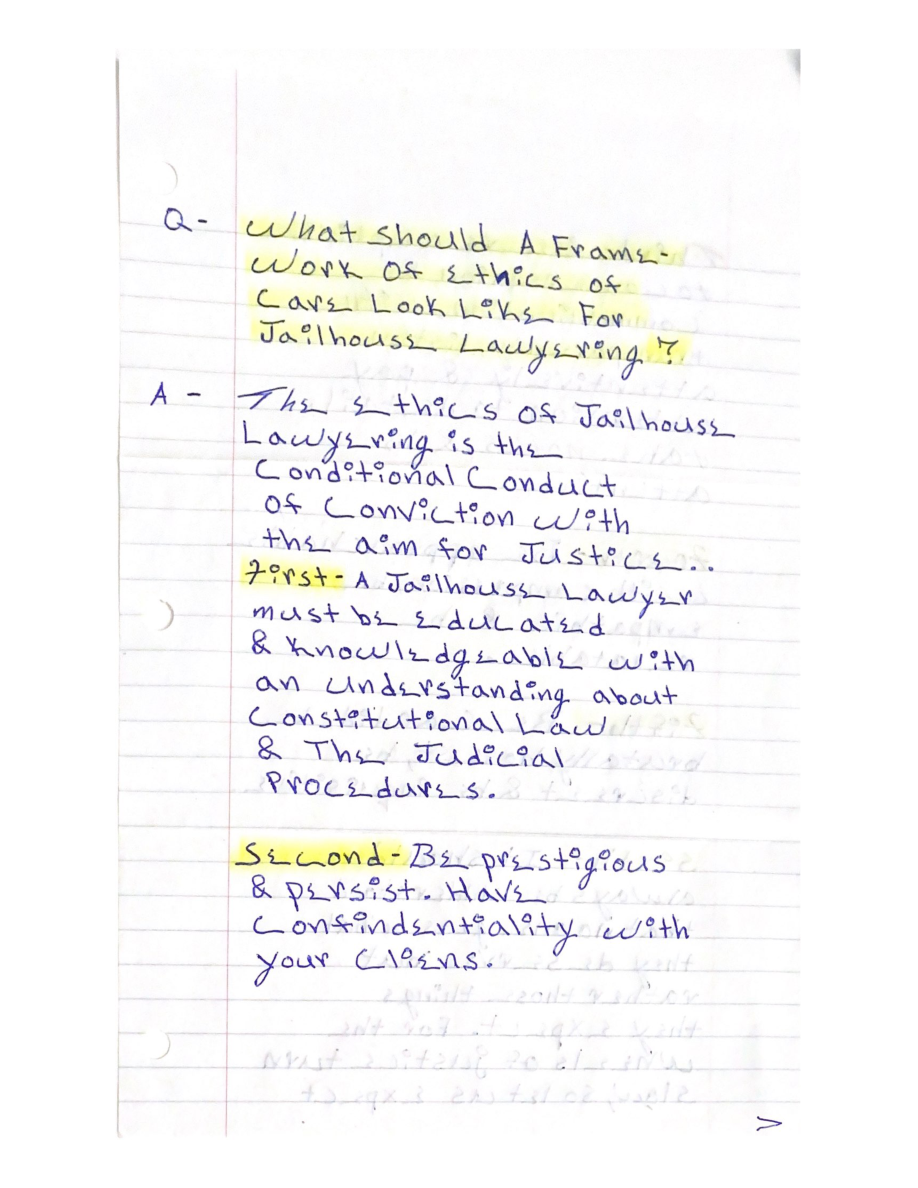 Q- What should A Frame-
Work Of Ethics of
Care Look Like For
Jailhouse Lawyering?
A - The Ethics Of Jailhouse
Lawyering is the
Conditional Conduct
Of Conviction with
the aim for Justice..
First- A Jailhouse Lawyer
must be Educated
& Knowledgeable with
an understanding about
Constitutional Law
& The Judicial
Procedures.
Second- Be prestigious
& persist. Have
Confindentiality with
your Cliens.
>